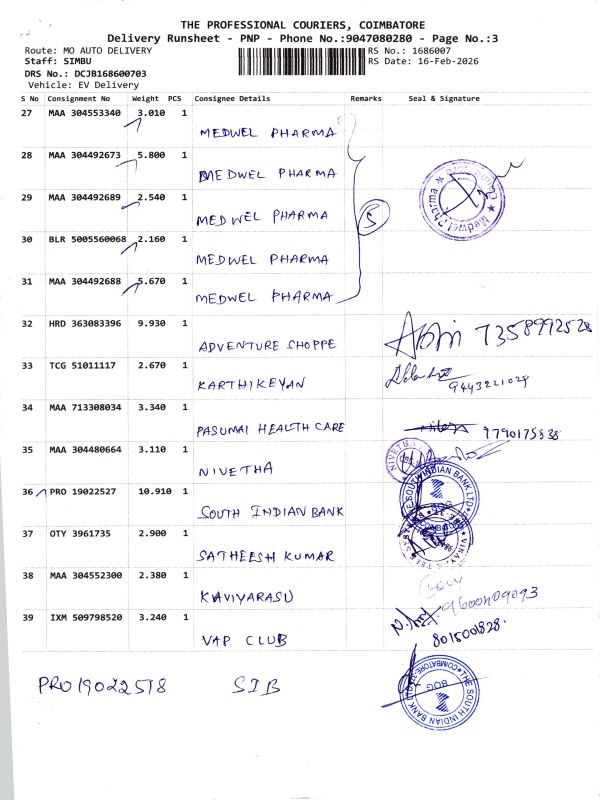 THE PROFESSIONAL COURIERS, COIMBATORE
Delivery Runsheet - PNP - Phone No.:9047080280 - Page No.:3
Route: MO AUTO DELIVERY RS No.: 1686007
Staff: SIMBU RS Date: 16-Feb-2026
DRS No.: DCJB168600703
Vehicle: EV Delivery
S No Consignment No Weight PCS Consignee Details Remarks Seal & Signature
27 MAA 304553340 3.010 1
MEDWEL PHARMA
28 MAA 304492673 5.800 1
MEDWEL PHARMA
29 MAA 304492689 2.540 1
MEDWEL PHARMA
5
Medwel Pharma
30 BLR 5005560068 2.160 1
MEDWEL PHARMA
31 MAA 304492688 5.670 1
MEDWEL PHARMA
32 HRD 363083396 9.930 1
ADVENTURE SHOPPE 7358992528
33 TCG 51011117 2.670 1
KARTHIKEYAN 9443221029
34 MAA 713308034 3.340 1
PASUMAI HEALTH CARE 9790175838
35 MAA 304480664 3.110 1
NIVETHA
36 PRO 19022527 10.910 1
SOUTH INDIAN BANK
THE SOUTH INDIAN BANK LTD
BOG
37 OTY 3961735 2.900 1
SATHEESH KUMAR
38 MAA 304552300 2.380 1
KAVIYARASU
39 IXM 509798520 3.240 1
VAP CLUB 8015001828.
PRO19022578 SIB
THE SOUTH INDIAN BANK LTD
BOG
COIMBATORE